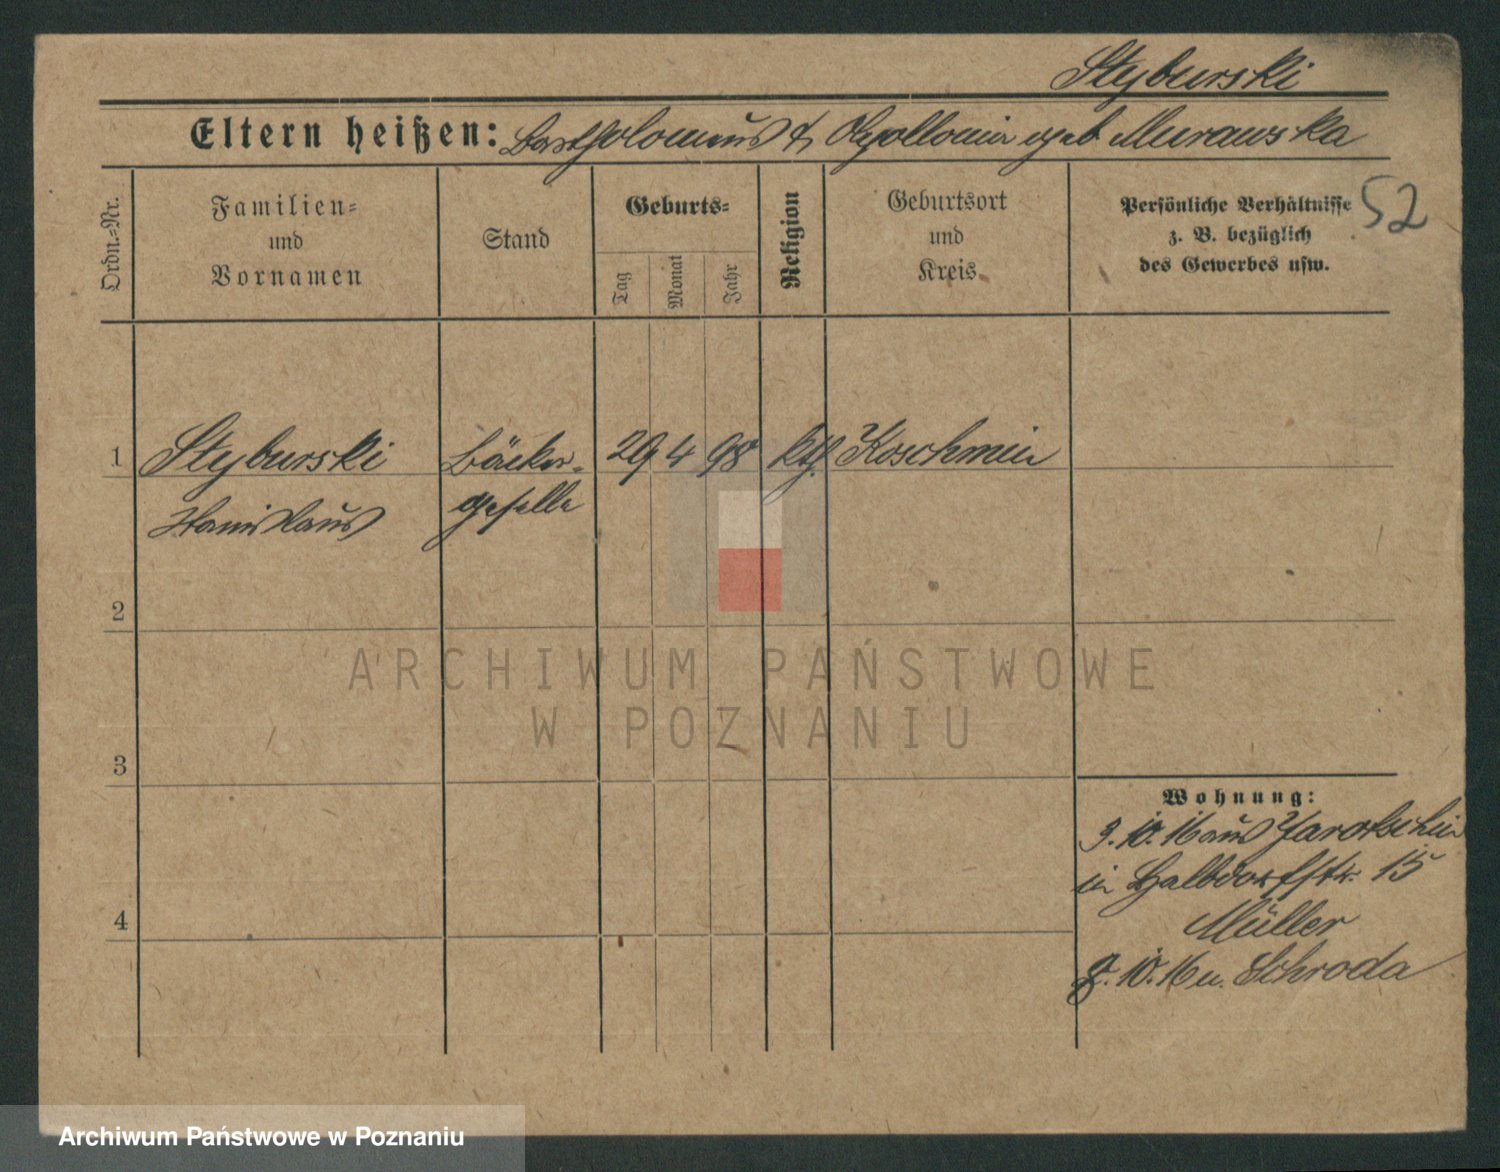 Styburski
Eltern heißen: Bartholomeus & Apollonia geb Murawska
Ordn.-Nr.
Familien- und Vornamen
Stand
Geburts-
Tag
Monat
Jahr
Religion
Geburtsort und Kreis
Persönliche Verhältnisse
z. B. bezüglich
des Gewerbes usw.
52
1 Styburski Bäcker- 29 4 98 kth. Koschmin
Stanislaus geselle
2
3
4
Wohnung:
3.10.16 aus Jarotschin
in Halbdorfstr. 15
Müller
9.10.16 n. Schroda
ARCHIWUM PAŃSTWOWE
W POZNANIU
Archiwum Państwowe w Poznaniu